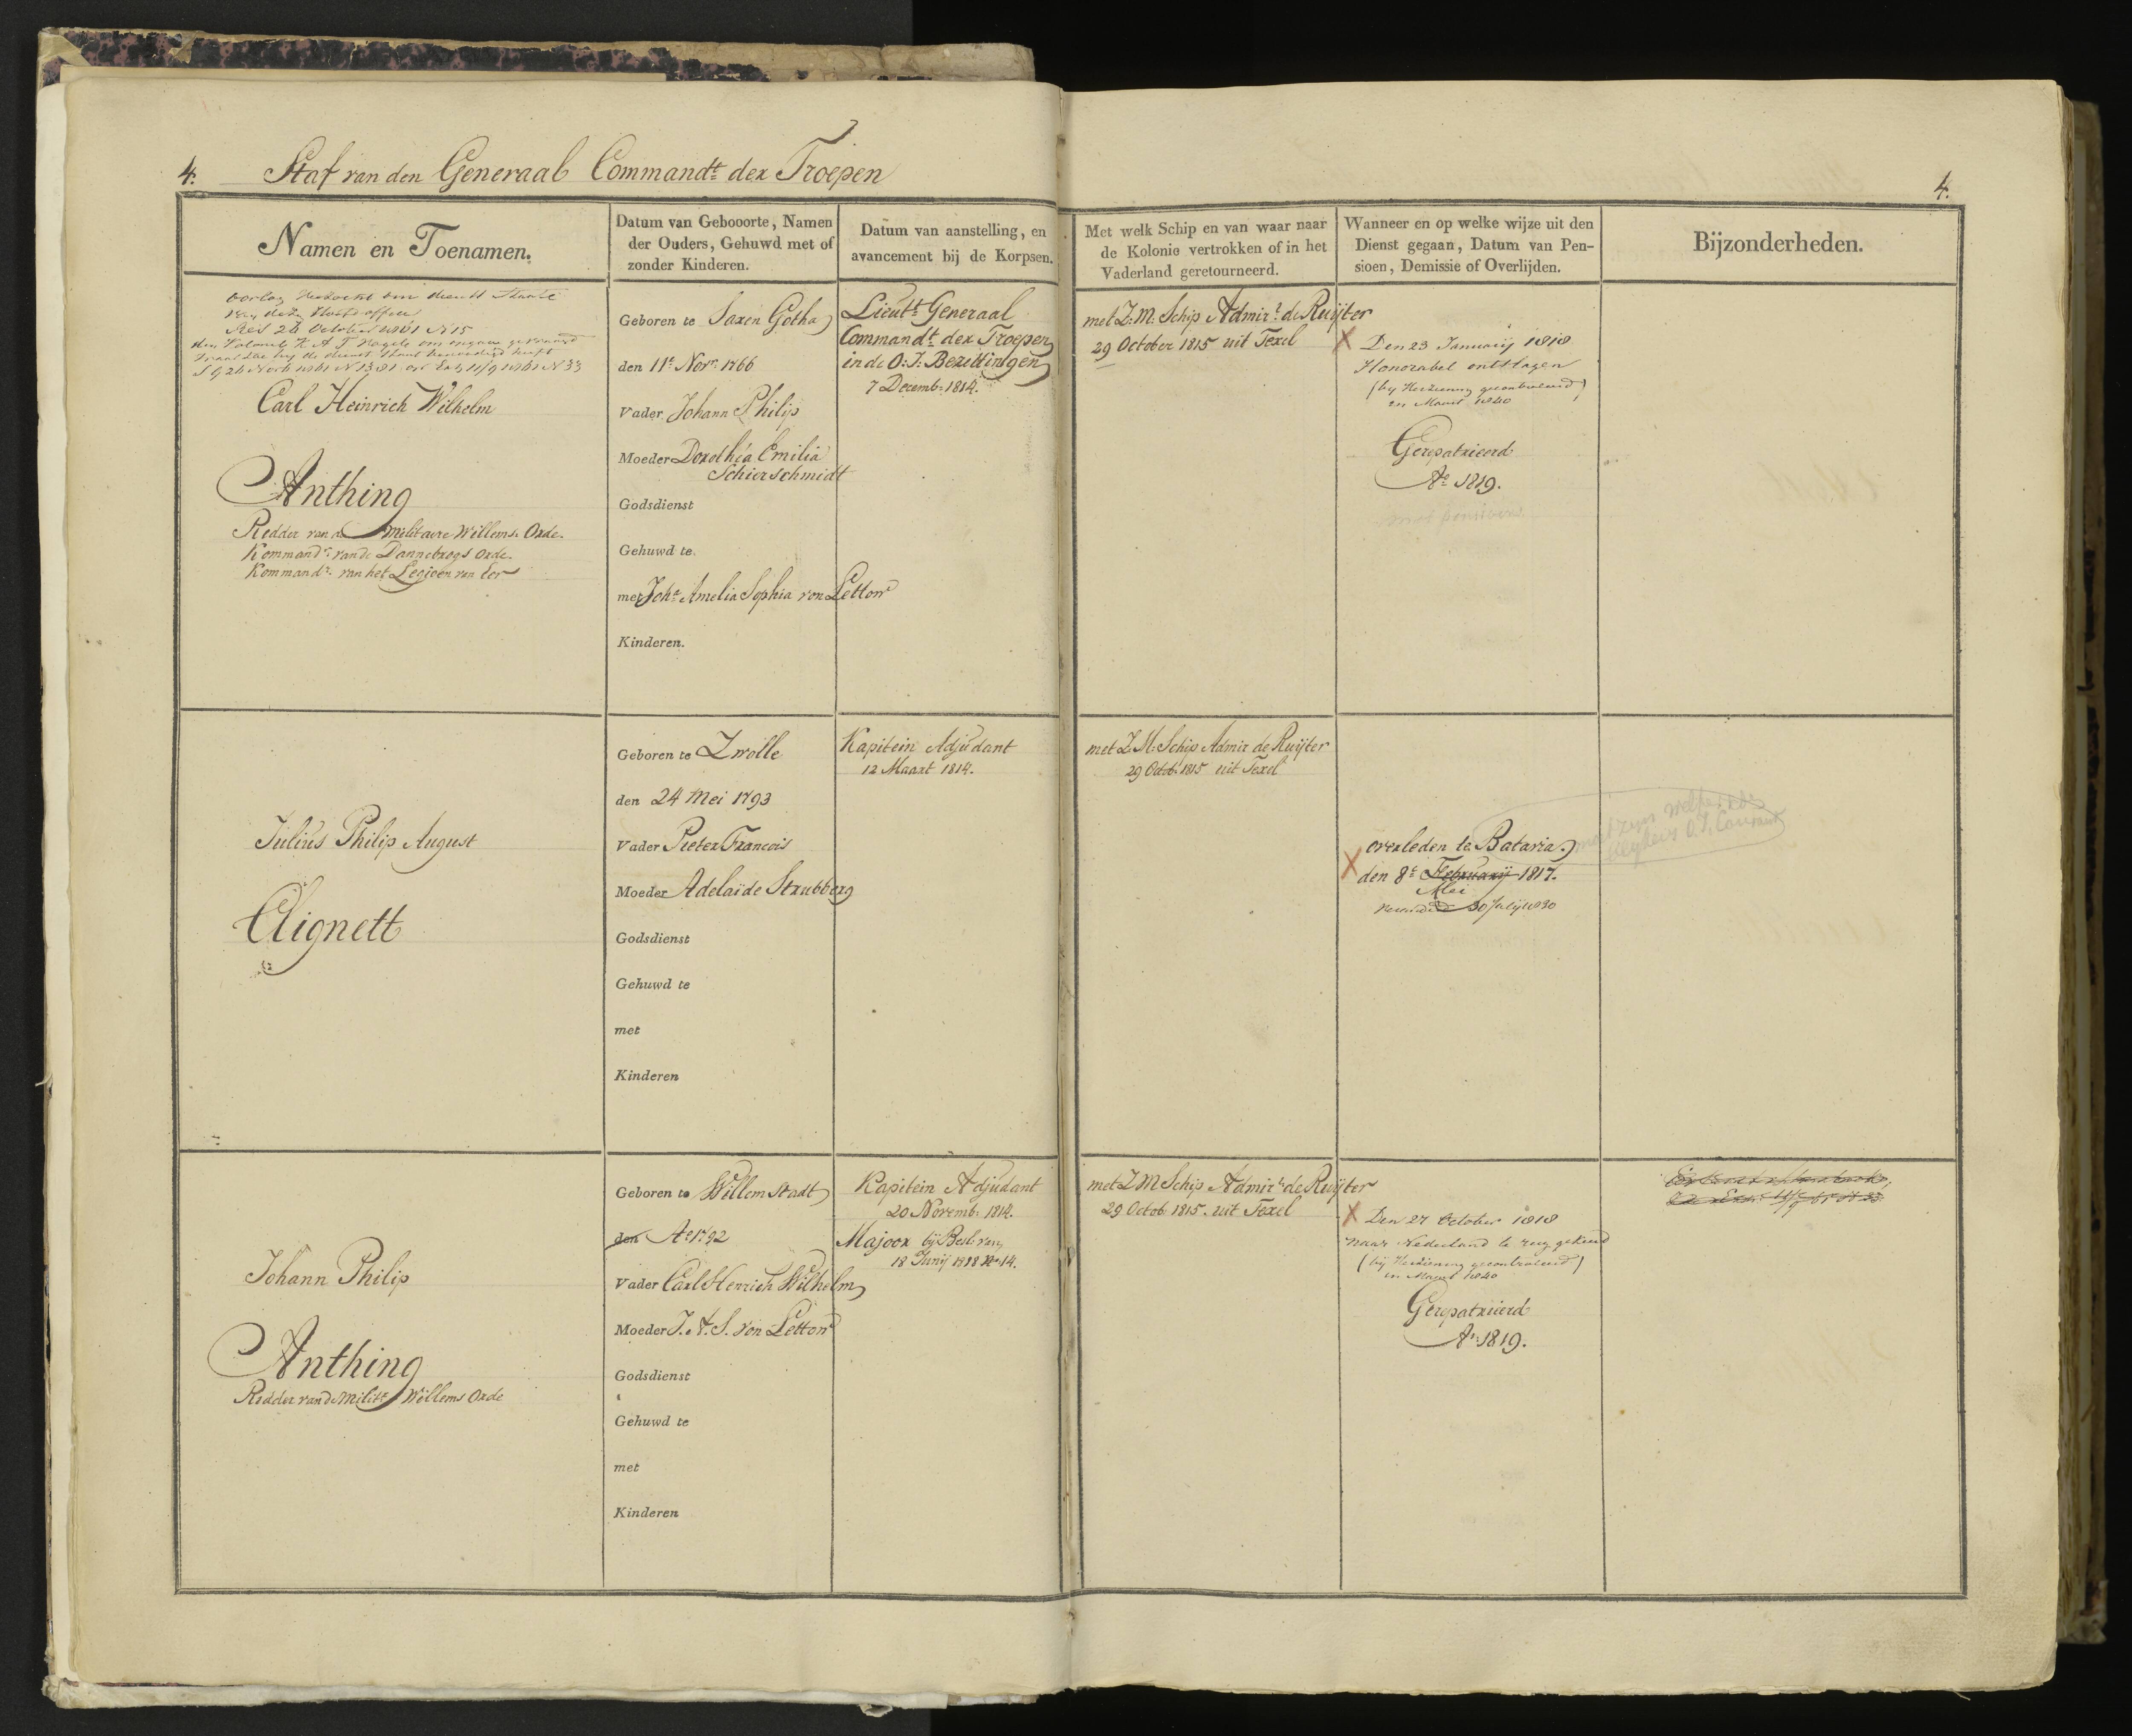 4.
Staf van den Generaal Commandt. der Troepen
4.
Namen en Toenamen.
Datum van Gebooorte, Namen
der Ouders, Gehuwd met of
zonder Kinderen.
Datum van aanstelling, en
avancement bij de Korpsen.
Met welk Schip en van waar naar
de Kolonie vertrokken of in het
Vaderland geretourneerd.
Wanneer en op welke wijze uit den
Dienst gegaan, Datum van Pen-
sioen, Demissie of Overlijden.
Bijzonderheden.
Carl Heinrich Wilhelm
Anthing
Ridder van de Militaire Willems Orde.
Kommandr. van de Dannebrogs Orde.
Kommandr. van het Legioen van Eer
Geboren te Saxen Gotha
den 11e Novr. 1766
Vader Johann Philip
Moeder Dorothéa Emilia
Schierschmidt
Godsdienst
Gehuwd te
met Joha. Amelia Sophia von Lettow
Kinderen.
Lieutt. Generaal
Commandt. der Troepen
in de O: I: Bezittingen
7 Decemb: 1814.
met Z: M. Schip Admirl. de Ruijter
29 October 1815 uit Texel
X Den 23 Januarij 1818
Honorabel ontslagen
(bij Herziening gecontroleerd)
in Maart 1840
Gerepatrieerd
Ao. 1819.
Julius Philip August
Clignett
Geboren te Zwolle
den 24 Mei 1793
Vader Pieter Francois
Moeder Adelaide Strubberg
Godsdienst
Gehuwd te
met
Kinderen
Kapitein Adjudant
12 Maart 1814.
met Z. M. Schip Admir de Ruijter
29 Octob. 1815 uit Texel
overleden te Batavia.
X den 8e Februarij 1817.
Mei
30 Julij 1830
Johann Philip
Anthing
Ridder van de Militt. Willems Orde
Geboren te Willemstadt
den Ao 1792
Vader Carl Henrich Wilhelm
Moeder J. A. S. von Lettow
Godsdienst
Gehuwd te
met
Kinderen
Kapitein Adjudant
20 Novemb. 1814.
Majoor bij Besl. van
18 Junij 1818 No. 14.
met Z M Schip Admirl. de Ruijter
29 Octob 1815. uit Texel
X Den 27 October 1818
naar Nederland te rug gekeerd
(bij Herziening gecontroleerd)
in Maart 1840
Gerepatrieerd
Ao. 1819.